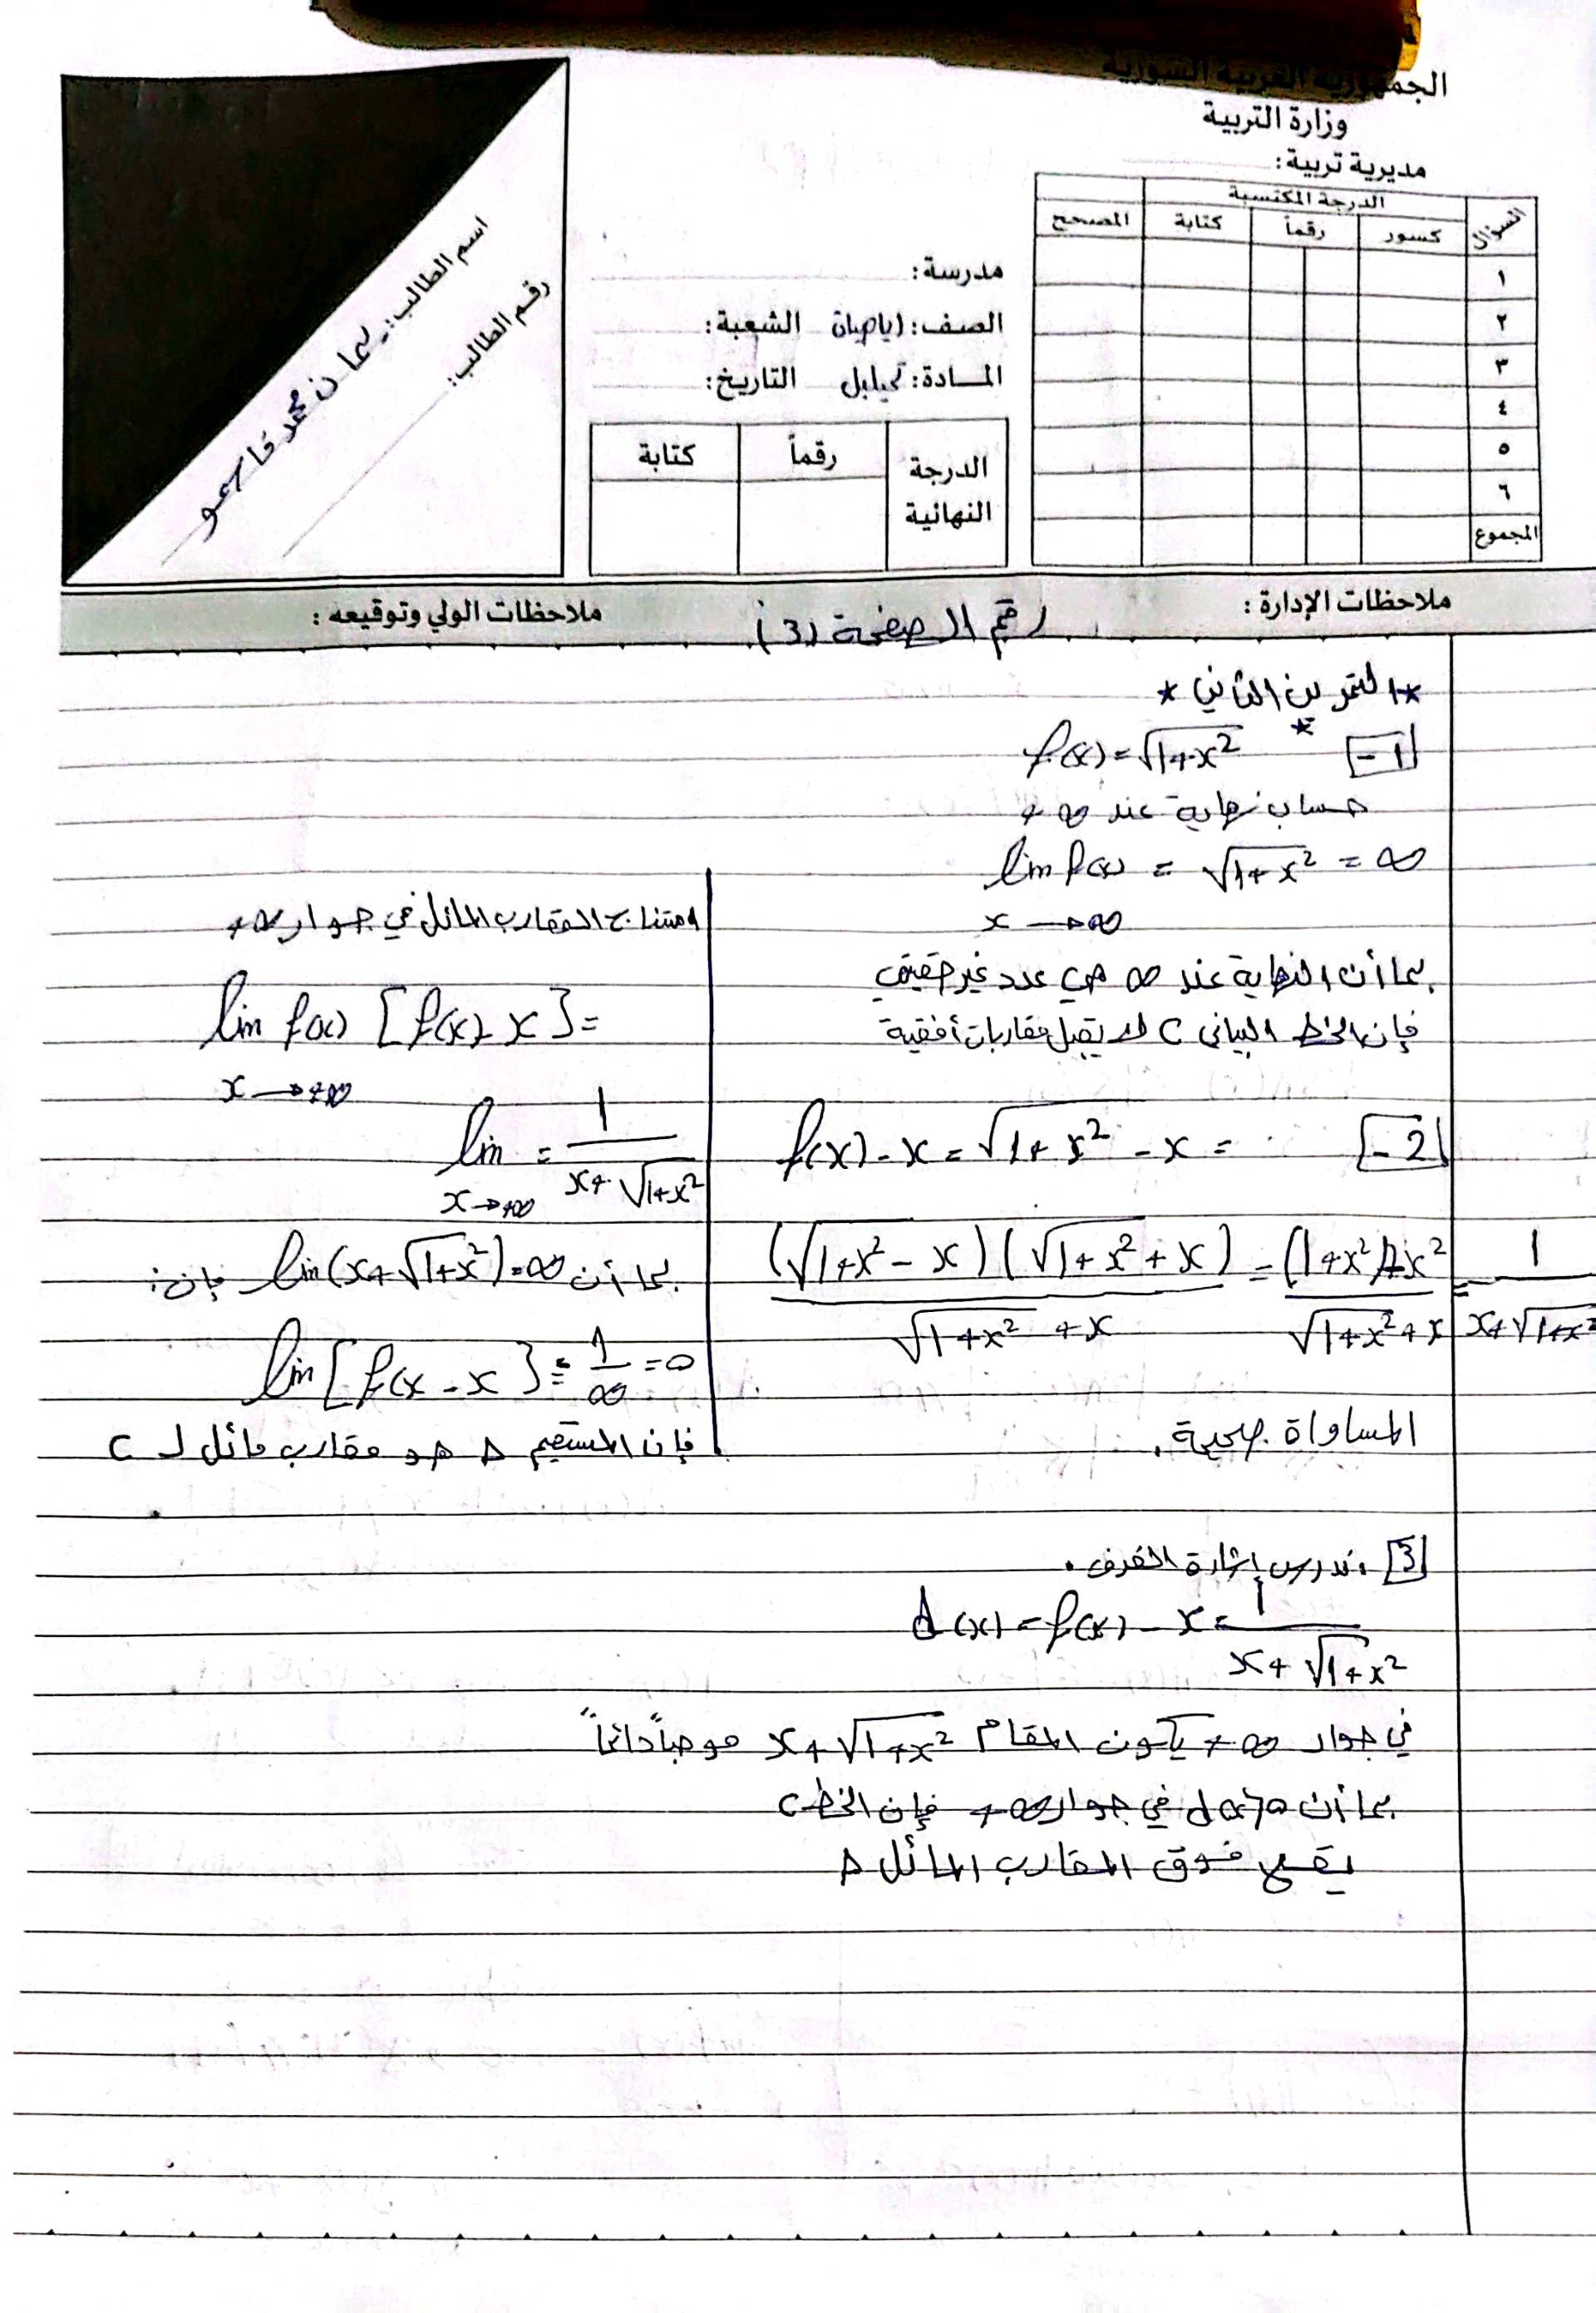 الجمهورية العربية السورية
وزارة التربية
مديرية تربية:
السؤال
الدرجة المكتسبة
المصحح
كسور
رقماً
كتابة
١
٢
٣
٤
٥
٦
المجموع
مدرسة:
الصف: الشعبة:
المادة: تحليل التاريخ:
الدرجة النهائية
رقماً
كتابة
اسم الطالب:
رقم الطالب:
ملاحظات الإدارة:
رقم الصفحة (3)
ملاحظات الولي وتوقيعه:
* التمرين الثاني *
1- * f(x) = √(1+x²)
حساب نهاية عند +∞
lim f(x) = √(1+x²) = ∞
x → ∞
بما أن النهاية عند ∞ هي عدد غير حقيقي
فإن الخط البياني C لا يقبل مقاربات أفقية
2- f(x) - x = √(1+x²) - x =
(√(1+x²) - x)(√(1+x²) + x) / (√(1+x²) + x) = (1+x²) - x² / (√(1+x²) + x) = 1 / (x+√(1+x²))
المساواة صحيحة.
استنتاج المقارب المائل في جوار +∞
lim f(x) [f(x) - x] =
x → +∞
lim = 1 / (x+√(1+x²))
x → +∞
بما أن lim(x+√(1+x²)) = ∞ فإن:
lim [f(x - x] = 1/∞ = 0
فإن المستقيم Δ هو مقارب مائل لـ C
3 ندرس إشارة الفرق.
d(x) = f(x) - x = 1 / (x+√(1+x²))
في جوار +∞ يكون المقام x+√(1+x²) موجباً دائماً
بما أن d(x)>0 في جوار +∞ فإن الخط C
يقع فوق المقارب المائل Δ